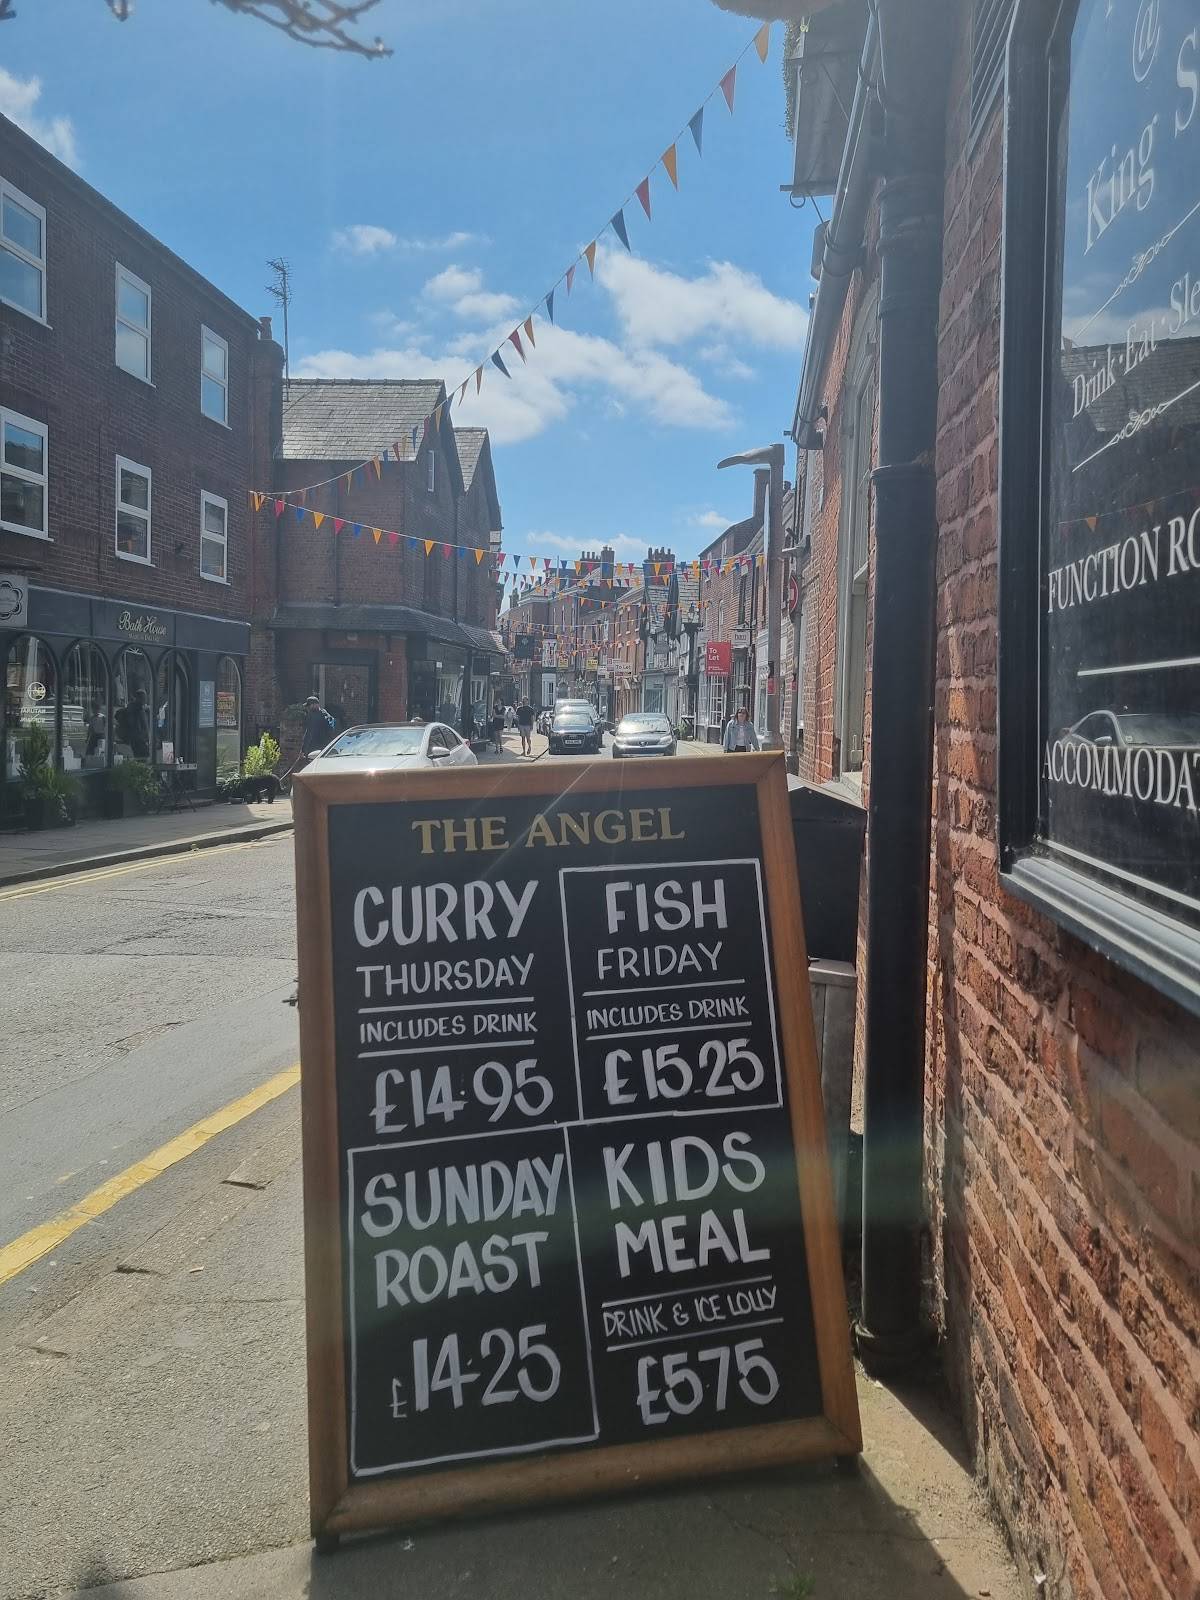 THE ANGEL
CURRY
THURSDAY
INCLUDES DRINK
£14.95
FISH
FRIDAY
INCLUDES DRINK
£15.25
SUNDAY
ROAST
£14.25
KIDS
MEAL
DRINK & ICE LOLLY
£5.75
@
King S
Drink·Eat·Sle
FUNCTION RO
ACCOMMODAT
Bath House
To
Let
To Let